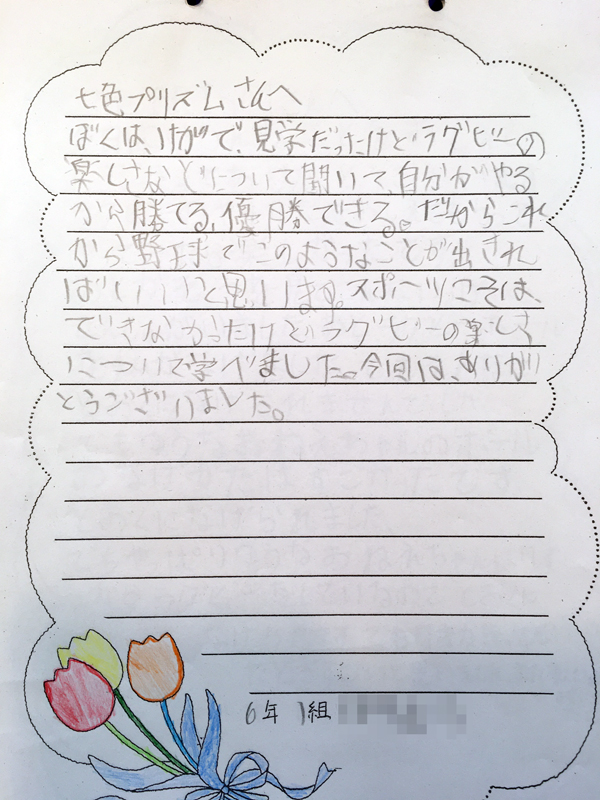 七色プリズムさんへ
ぼくは、けがで、見学だったけどラグビーの
楽しさなどについて聞いて、自分がやる
から勝てる、優勝できる。だからこれ
から野球でこのようなことが出され
ばいいと思います。スポーツこそは、
できなかったけどラグビーの楽しさ
について学べました。今回は、ありが
とうございました。
6年1組